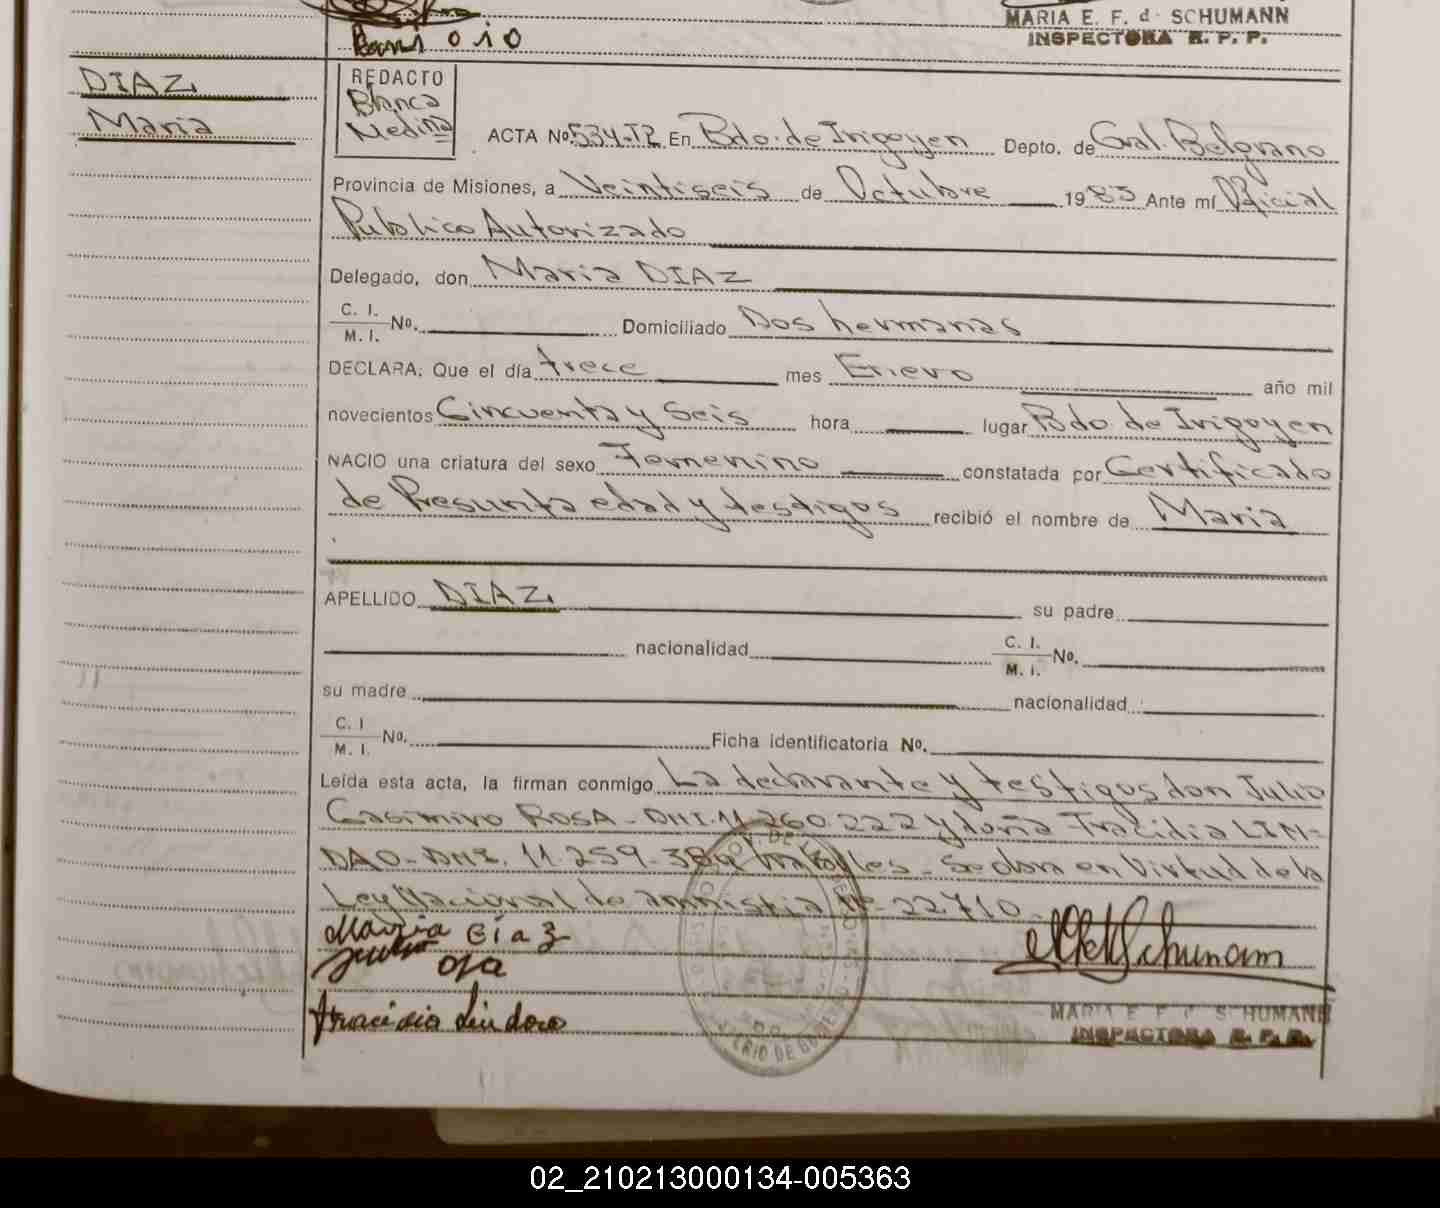 MARIA E. F. d. SCHUMANN
INSPECTORA R. P. P.
DIAZ,
Maria
REDACTO
Blanca
Medina
ACTA Nº 534-T2 En Bdo. de Irigoyen Depto. de Gral. Belgrano
Provincia de Misiones, a Veintiseis de Octubre 1983 Ante mí Oficial
Publico Autorizado
Delegado, don Maria DIAZ
C. I.
M. I. Nº. Domiciliado Dos hermanas
DECLARA: Que el día trece mes Enero año mil
novecientos Cincuenta y Seis hora lugar Bdo de Irigoyen
NACIO una criatura del sexo Femenino constatada por Certificado
de Presunta edad y testigos recibió el nombre de Maria
APELLIDO DIAZ, su padre
nacionalidad C. I.
M. I. Nº.
su madre nacionalidad
C. I
M. I. Nº. Ficha identificatoria Nº.
Leída esta acta, la firman conmigo La declarante y testigos don Julio
Casimiro ROSA - DNI. 11.260.222 y doña Tracidia LIN-
DAO - DNI. 11.259.384 habiles - Se labra en Virtud de la
Ley Nacional de amnistia Nº 22710.
Maria Díaz
MARIA E F d SCHUMANN
INSPECTORA R. P. P.
02_210213000134-005363